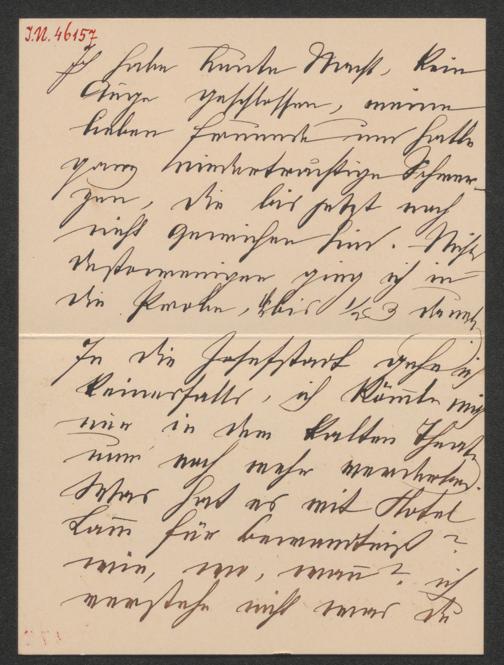 I.N. 46157
Ich habe heute Nacht, kein
Auge geschlossen, meine
lieben Freunde und hatte
ganz niederträchtige Schmer-
zen, die bis jetzt noch
nicht gewichen sind. Nichts
destoweniger ging ich in
die Probe, bis 1/2 3 dauerte
In die Josefstadt gehe ich
keinesfalls, ich könnte mich
nur in dem kalten Theater
nur noch mehr verderben.
Was hat es mit Hotel
Lam̄ für Bewandtniß?
wie, wo, wan̄? ich
verstehe nicht was Du